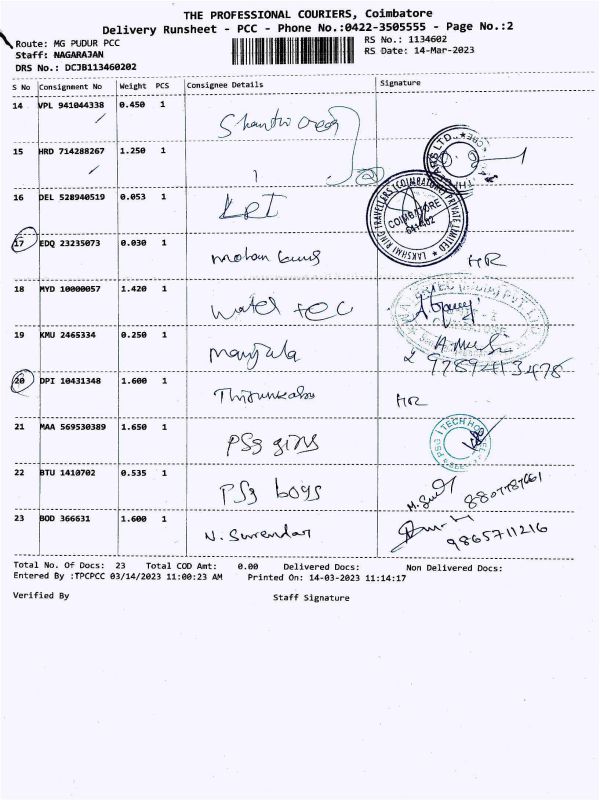 THE PROFESSIONAL COURIERS, Coimbatore
Delivery Runsheet - PCC - Phone No.:0422-3505555 - Page No.:2
Route: MG PUDUR PCC
RS No.: 1134602
Staff: NAGARAJAN
RS Date: 14-Mar-2023
DRS No.: DCJB113460202
S No Consignment No Weight PCS Consignee Details Signature
14 VPL 941044338 0.450 1
15 HRD 714288267 1.250 1
16 DEL 528940519 0.053 1
LAKSHMI RING TRAVELLERS (COIMBATORE) PRIVATE LIMITED
COIMBATORE
17 EDQ 23235073 0.030 1 mohan HR
18 MYD 10000057 1.420 1 water tec
19 KMU 2465334 0.250 1 manjula
9789413478
20 DPI 10431348 1.600 1 HR
21 MAA 569530389 1.650 1 PSG girls
PSG I TECH HOSTEL
22 BTU 1410702 0.535 1 PSG boys
23 BOD 366631 1.600 1 N. Surrendar 9865711216
Total No. Of Docs: 23 Total COD Amt: 0.00 Delivered Docs: Non Delivered Docs:
Entered By :TPCPCC 03/14/2023 11:00:23 AM Printed On: 14-03-2023 11:14:17
Verified By Staff Signature